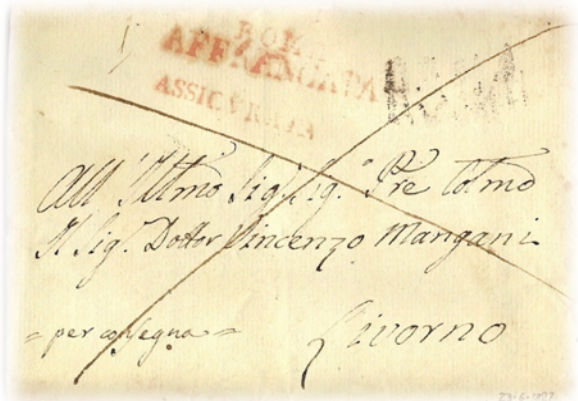 ROMA
AFFRANCATA
ASSICURATA
All' Illmo Sig. Sig. Pre Colmo
Il Sig. Dottor Vincenzo Mangani
= per consegna =
Livorno